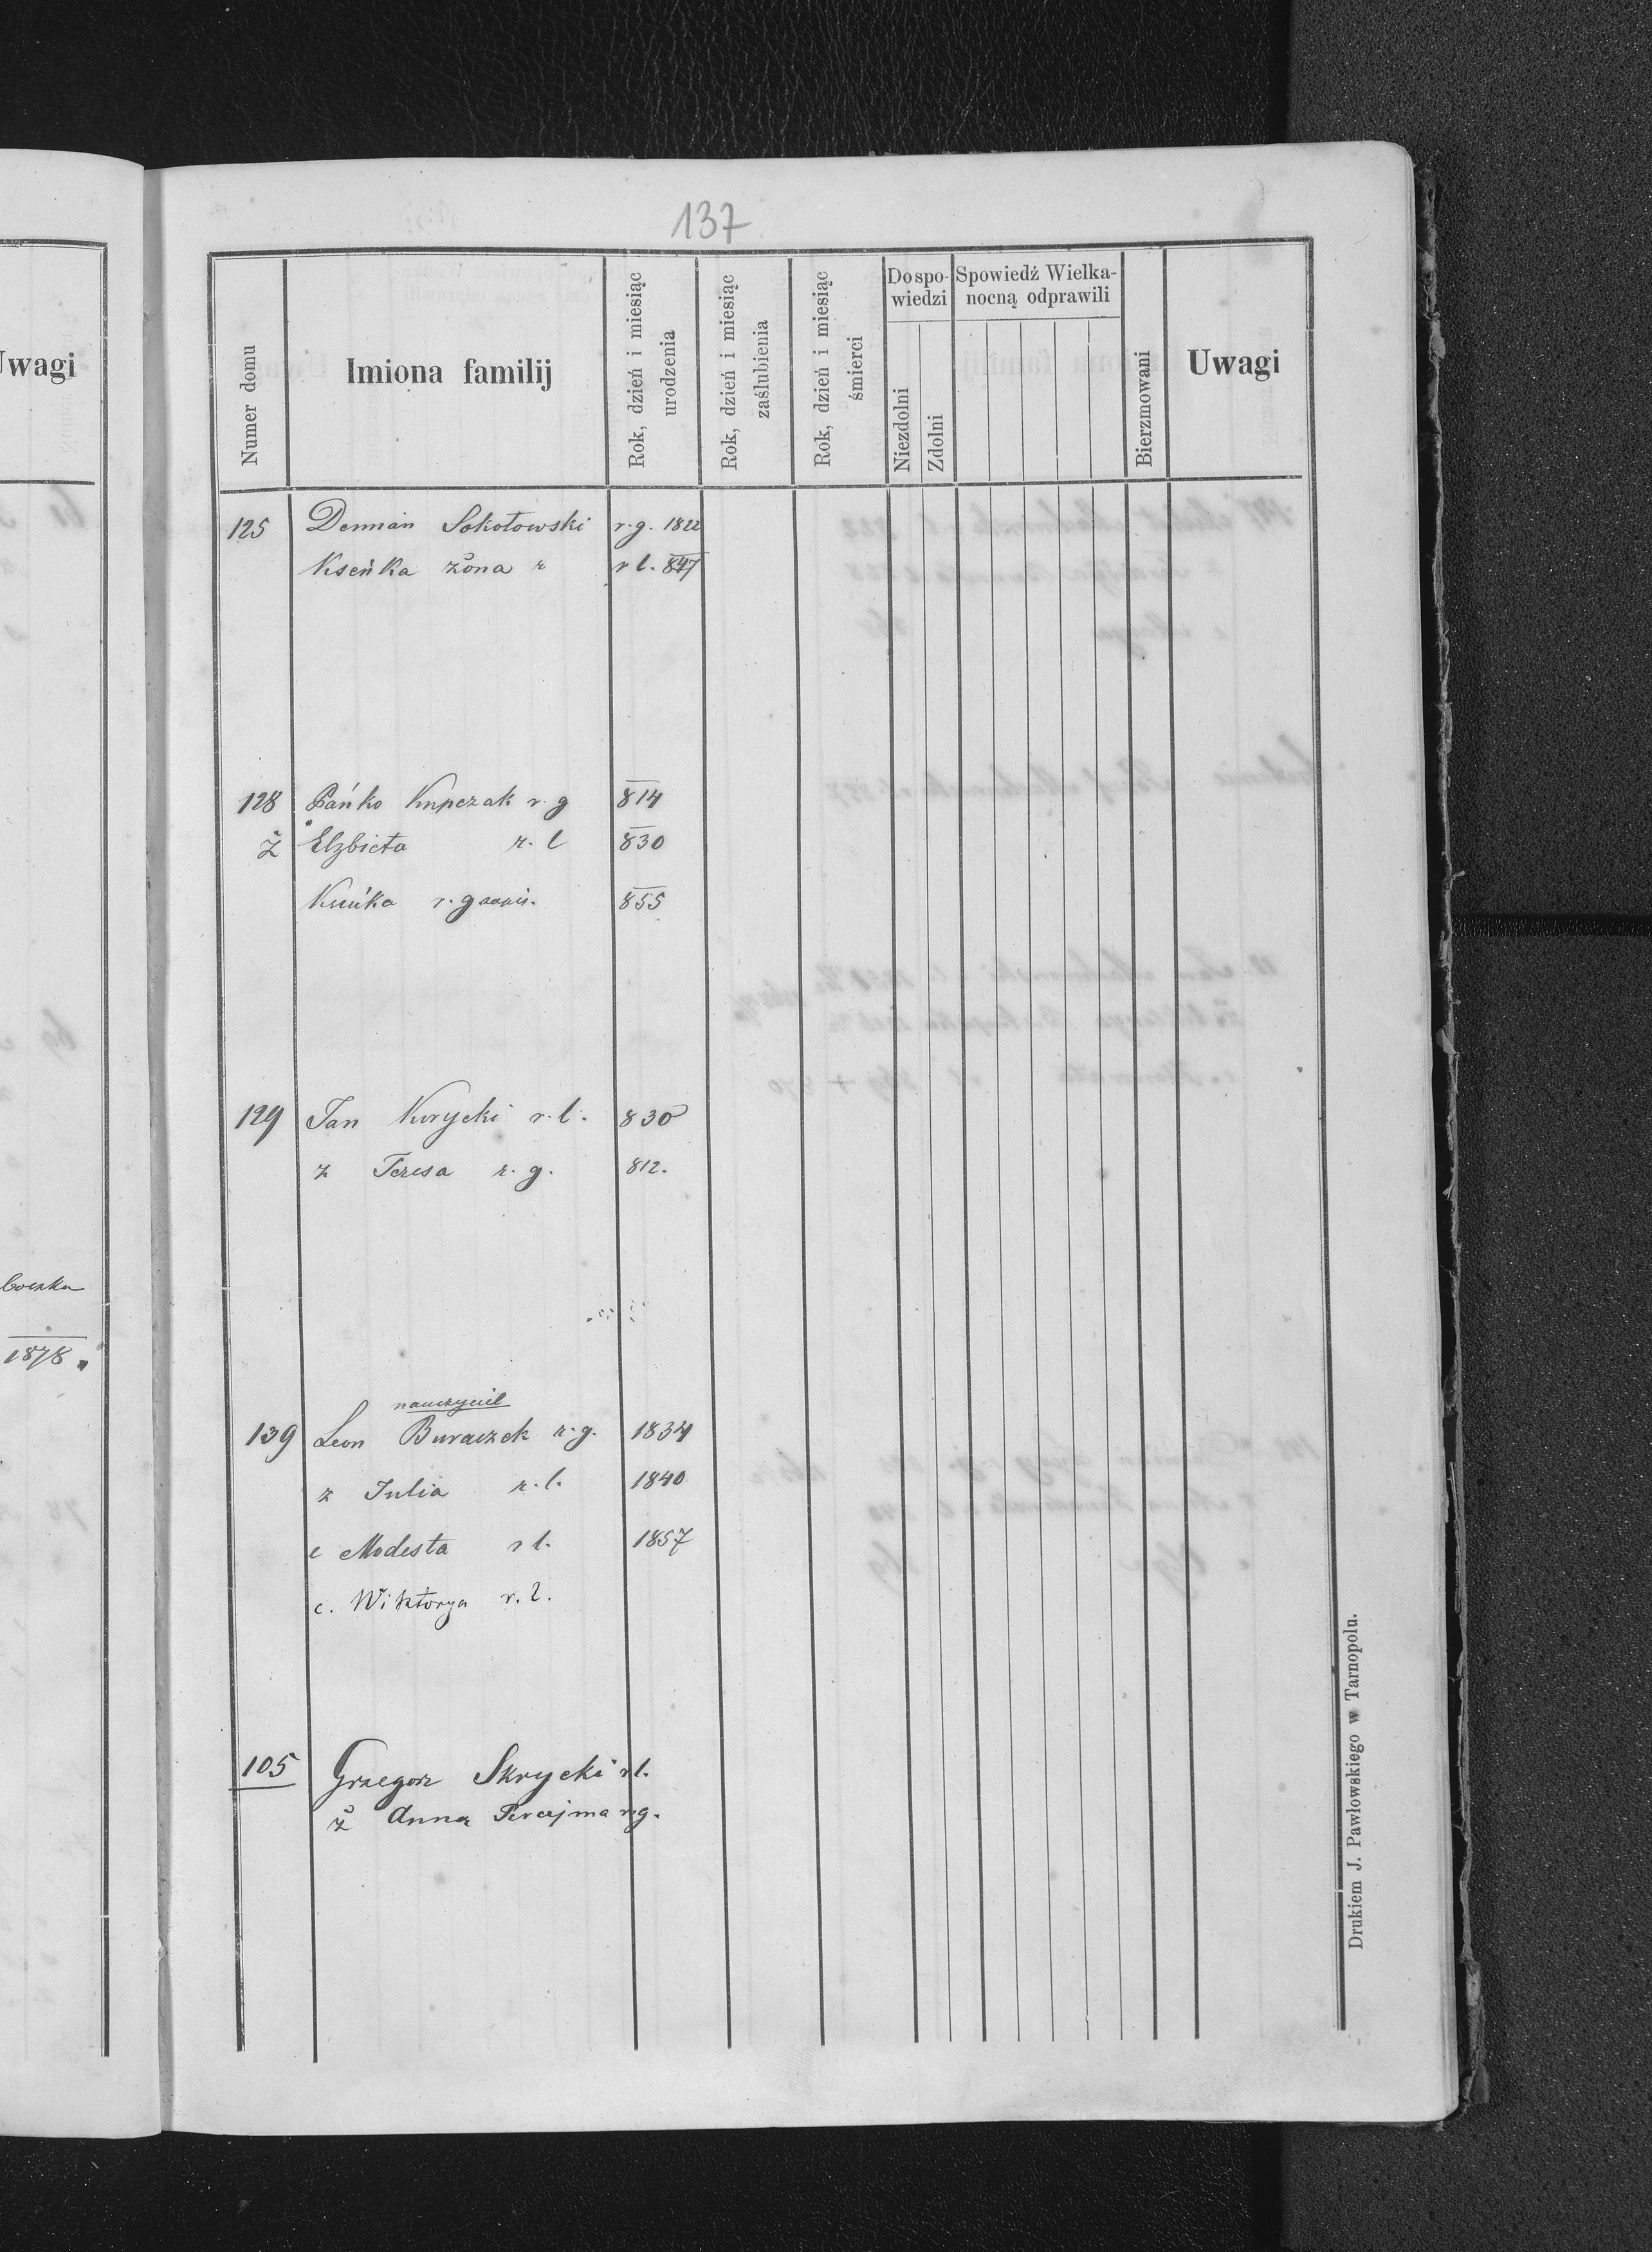 137
Uwagi
Numer domu
Imiona familij
Rok, dzień i miesiąc urodzenia
Rok, dzień i miesiąc zaślubienia
Rok, dzień i miesiąc śmierci
Do spowiedzi
Niezdolni
Zdolni
Spowiedź Wielkanocną odprawili
Bierzmowani
Uwagi
125 Demian Sokołowski r. g. 1822
Kseńka żona r l. 847
128 Pańko Kupczak r. g 814
ż Elzbieta r. l 830
r. g 855
129 Jan Kurycki r. l. 830
z Teresa r. g. 812.
nauczyciel
139 Leon Buraczek r. g. 1834
z Julia r. l. 1840
c Modesta r l. 1857
c. Wiktorya r. l.
105 Grzegorz Skrycki r l.
ż Anna r. g.
1878
Drukiem J. Pawłowskiego w Tarnopolu.